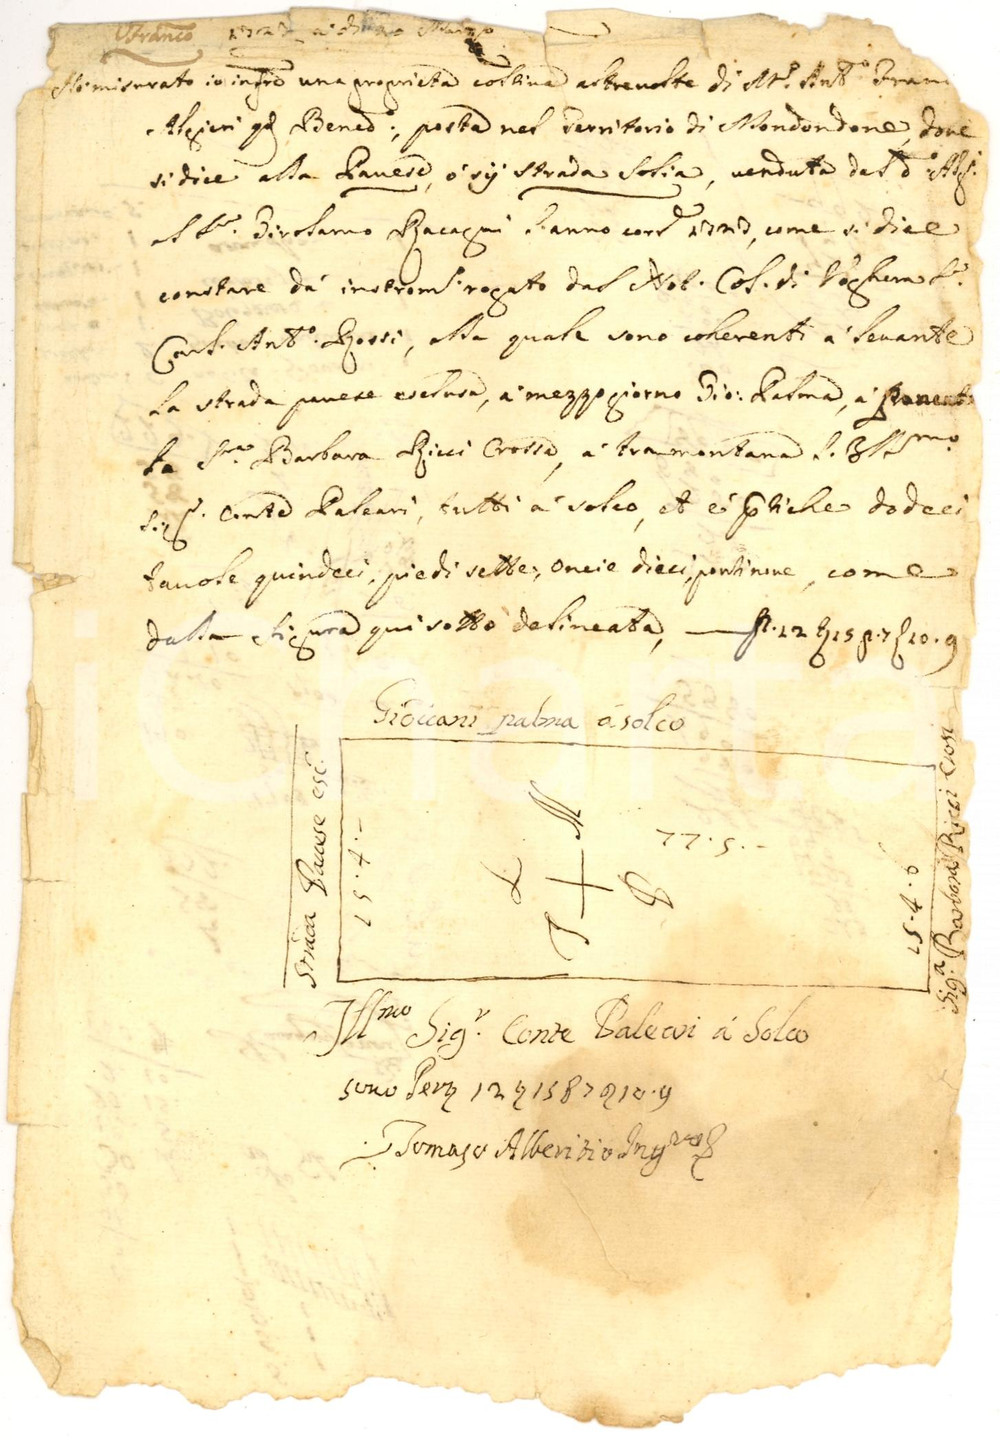 Franco 1727 a di 20 Marzo
Ho misurato io infrto una proprietà coltiva altrevolte di Mr. Anto Fran
Algieri qd Bened:, posta nel Territorio di Mondondone, dove
si dice alla Pavese, ò sij strada Solia, venduta dal do Alg.
al Sr. Girolamo Bacagni l'anno corte 1727, come si dice
constare dà instromto. rogato dal Not. Col. di Voghera Sr.
Carl. Anto. Rossi, alla quale sono coherenti à levante
la strada pavese esclusa, à mezzogiorno Gio: Palma, à ponente
la Sra Barbara Ricci Crosa, à tramontana l'Illmo.
Sigr. Conte Paleari, tutti à solco, et è ptiche dodeci
tavole quindeci, piedi sette:, oncie dieci, ponti nove, come
dalla figura qui sotto delineata, — P. 12 t 15 p. 7 10. 9
Gioüani palma à solco
Strada Pavese esc.
15. 4. –
M
L P
T
77. 5. –
15. 4. 6
Siga. Barbara Ricci Crosi
Illmo Sigr. Conte Paleari à Solco
sono Per 12 15 8 7 10. 9
Tomaso Alberitio Ingre